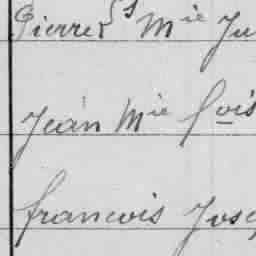 Pierre Mie Ju
Jean Mie fois
francois Jose